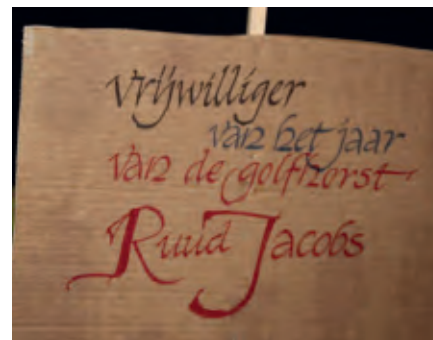 vrijwilliger
van het jaar
van de golfhorst
Ruud Jacobs